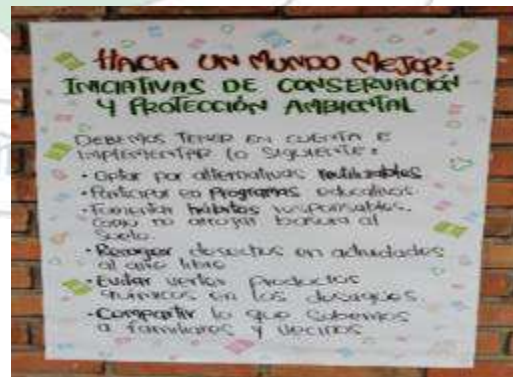 HACIA UN MUNDO MEJOR:
INICIATIVAS DE CONSERVACIÓN
Y PROTECCIÓN AMBIENTAL
DEBEMOS TENER EN CUENTA E
IMPLEMENTAR LO SIGUIENTE:
• Optar por alternativas reutilizables
• Participar en Programas educativos
• Fomentar hábitos responsables,
como no arrojar basura al
suelo.
• Recoger desechos en actividades
al aire libre
• Evitar verter productos
químicos en los desagües.
• Compartir lo que sabemos
a familiares y vecinos